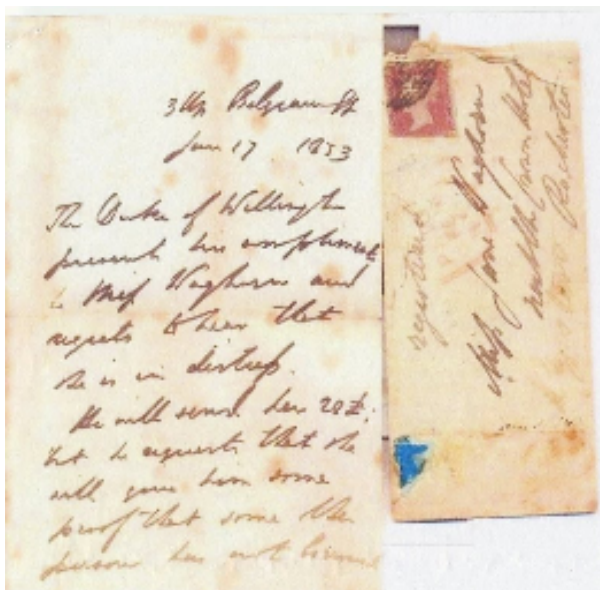 3 Up Belgrave St
Jan 17 1853
The Duke of Wellington
presents his compliments
to Miss Waghorn and
regrets to hear that
she is in distress.
He will send her 20£.
but he requests that she
will give him some
proof that some other
person has not
registered
Miss Jane Waghorn
Rochester